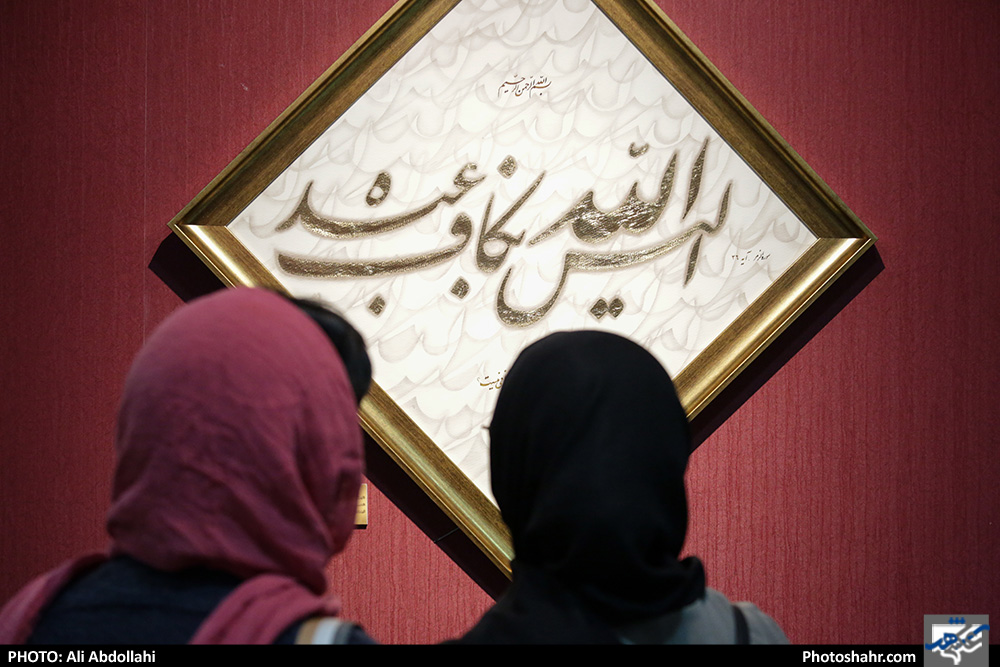 بسم الله الرحمن الرحیم
الیس الله بکاف عبده
سوره زمر آیه ۳۶
PHOTO: Ali Abdollahi
Photoshahr.com